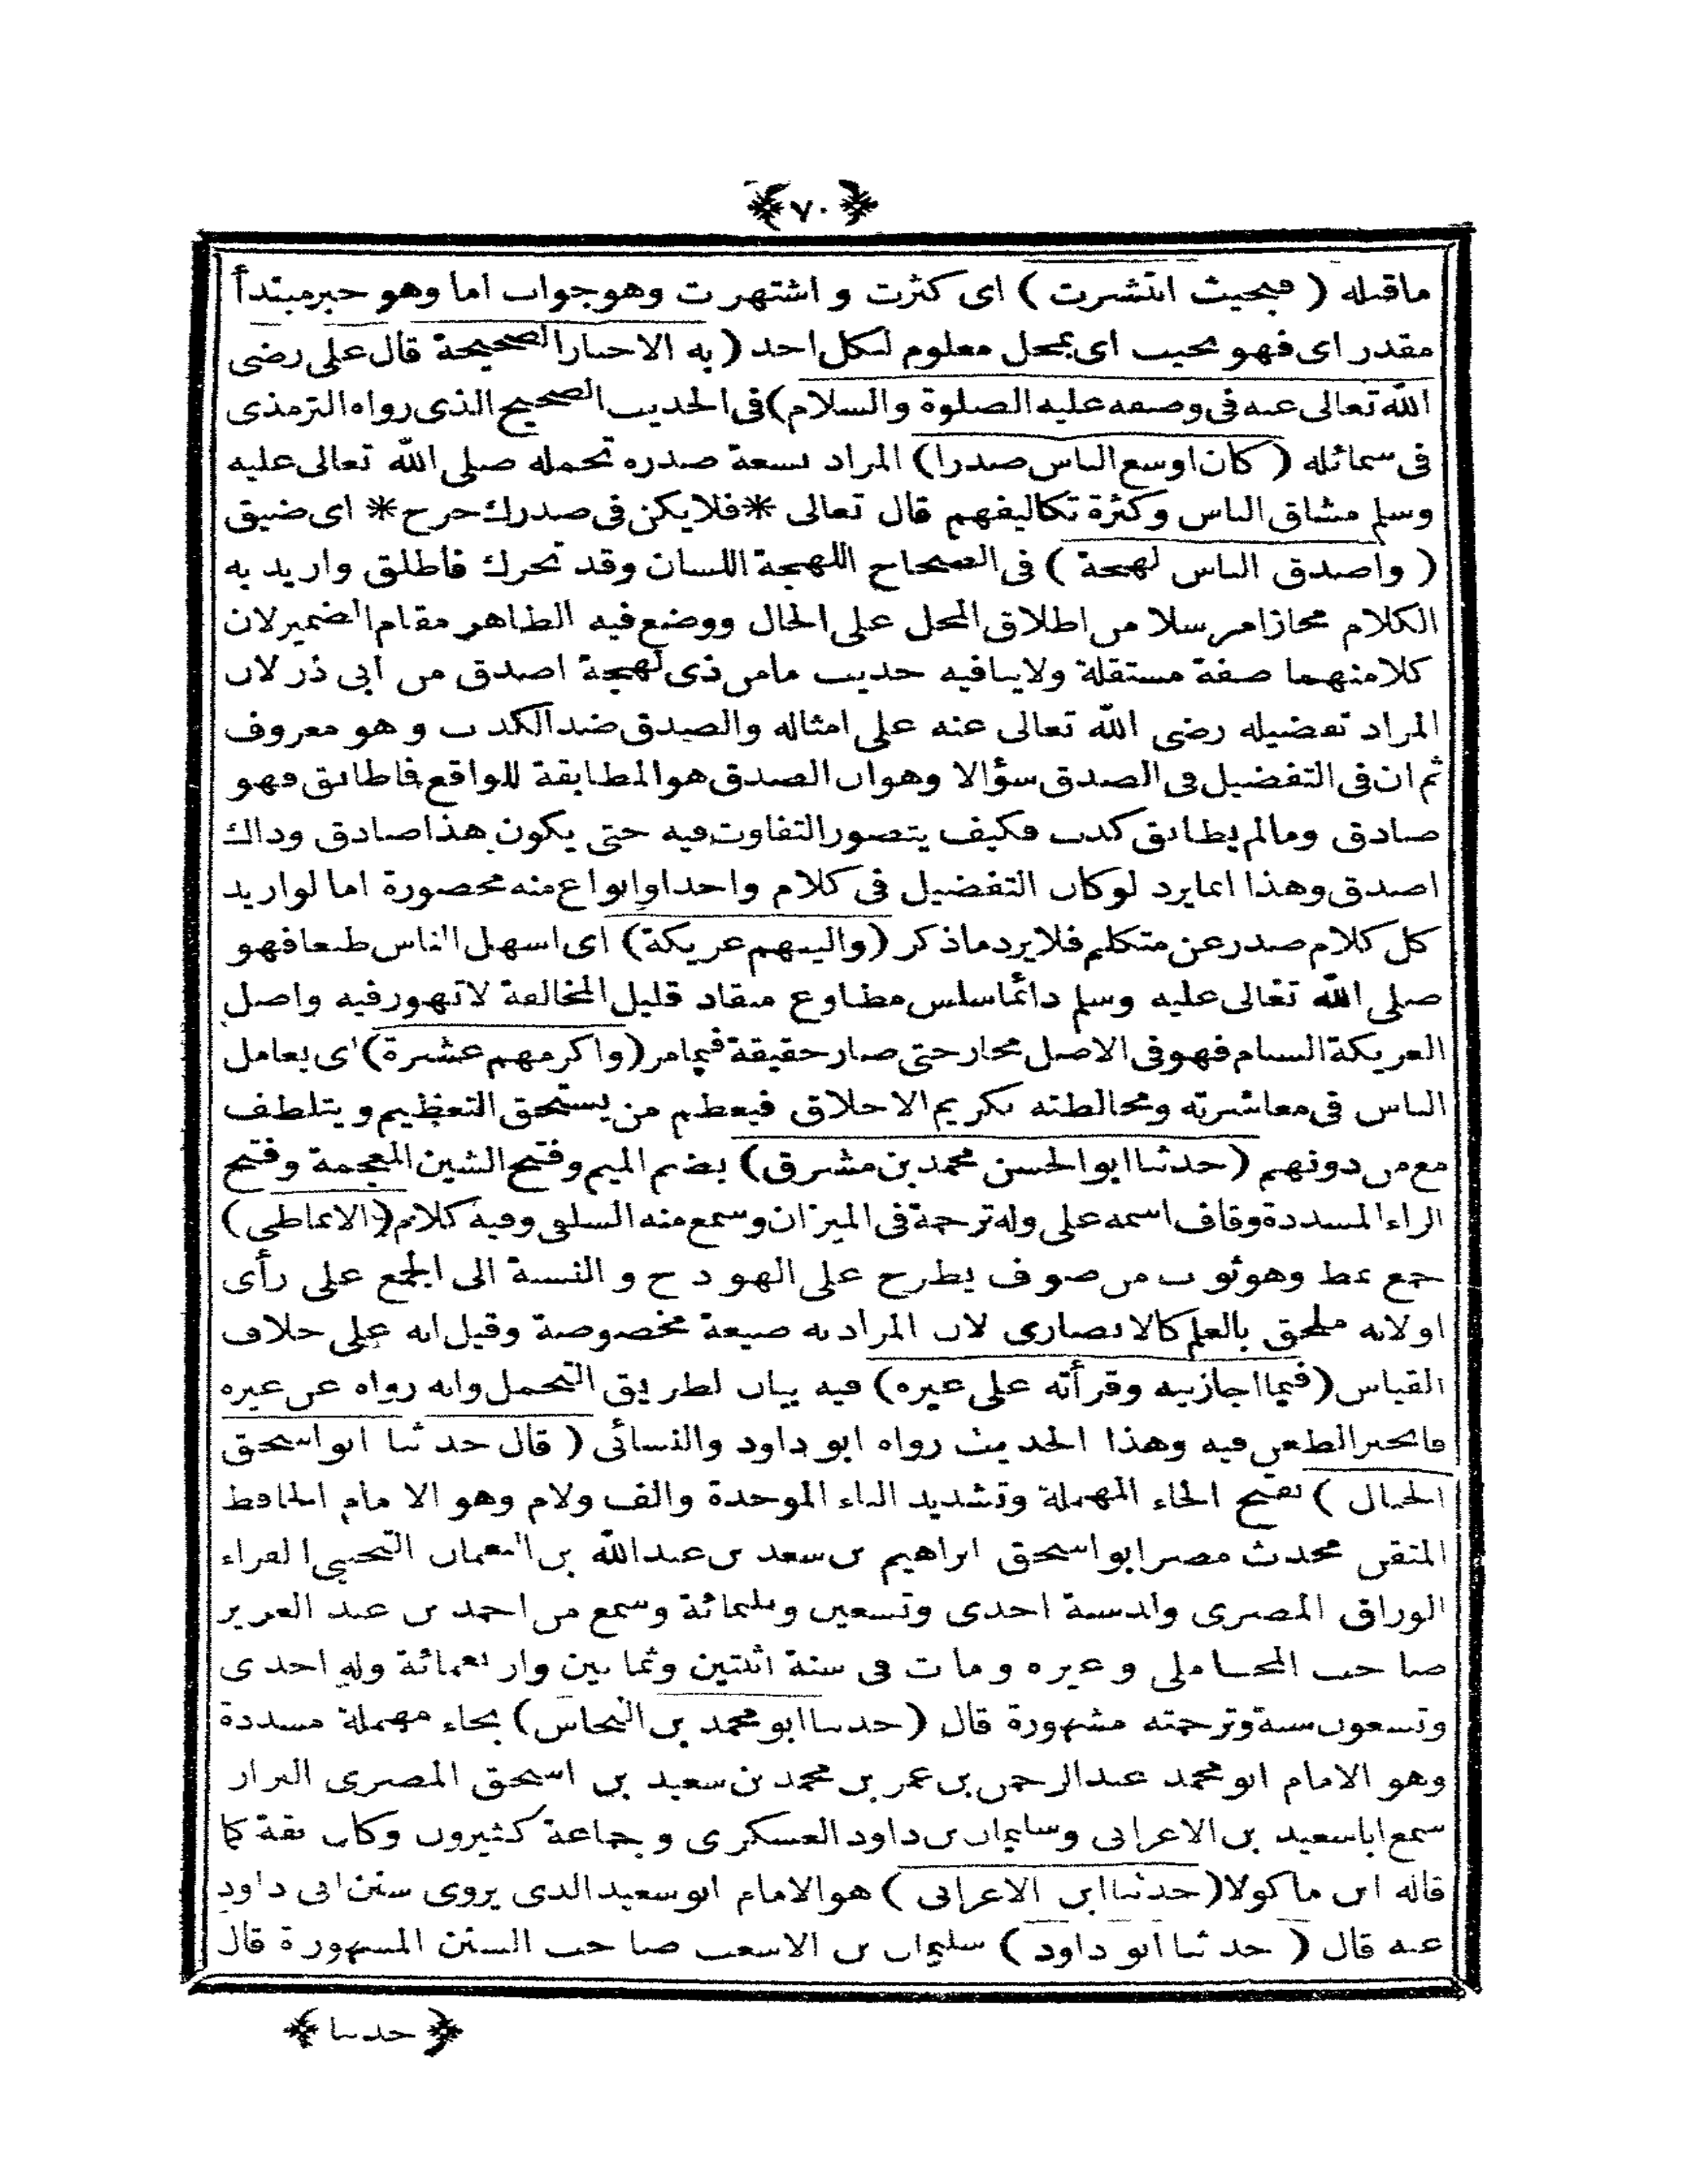 ﴿ ٧٠ ﴾
ماقبله ( فبحيث انتشرت ) اى كثرت و اشتهرت وهو جواب اما وهو خبر مبتدأ
مقدر اى فهو بحيث اى بمحل معلوم لكل احد ( به الاخبار الصحيحة قال على رضى
الله تعالى عنه فى وصفه عليه الصلوة والسلام ) فى الحديث الصحيح الذى رواه الترمذى
فى شمائله ( كان اوسع الناس صدرا ) المراد بسعة صدره تحمله صلى الله تعالى عليه
وسلم مشاق الناس وكثرة تكاليفهم قال تعالى * فلا يكن فى صدرك حرج * اى ضيق
( واصدق الناس لهجة ) فى الصحاح اللهجة اللسان وقد تحرك فاطلق واريد به
الكلام مجازا مرسلا من اطلاق المحل على الحال ووضع فيه الظاهر مقام الضمير لان
كلا منهما صفة مستقلة ولا ينافيه حديث ما من ذى لهجة اصدق من ابى ذر لان
المراد تفضيله رضى الله تعالى عنه على امثاله والصدق ضد الكذب و هو معروف
ثم ان فى التفضيل فى الصدق سؤالا وهو ان الصدق هو المطابقة للواقع فما طابق فهو
صادق ومالم يطابق كذب فكيف يتصور التفاوت فيه حتى يكون هذا صادق وذاك
اصدق وهذا انما يرد لو كان التفضيل فى كلام واحد او انواع منه محصورة اما لو اريد
كل كلام صدر عن متكلم فلا يرد ما ذكر ( والينهم عريكة ) اى اسهل الناس طبعا فهو
صلى الله تعالى عليه وسلم دائما سلس مطاوع منقاد قليل المخالفة لا تهور فيه واصل
العريكة السنام فهو فى الاصل مجاز حتى صار حقيقة فيما مر ( واكرمهم عشرة ) اى يعامل
الناس فى معاشرته ومخالطته بكريم الاخلاق فيعظم من يستحق التعظيم و يتلطف
مع من دونهم ( حدثنا ابو الحسن محمد بن مشرق ) بضم الميم وفتح الشين المعجمة وفتح
الراء المشددة وقاف اسمه على وله ترجمة فى الميزان وسمع منه السلفى وفيه كلام ( الانماطى )
جمع نمط وهو ثوب من صوف يطرح على الهودج و النسبة الى الجمع على رأى
اولانه ملحق بالعلم كالانصارى لان المراد به صيغة مخصوصة وقيل انه على خلاف
القياس ( فيما اجازنيه وقرأته على غيره ) فيه بيان لطريق التحمل وانه رواه عن غيره
فانجبر الطعن فيه وهذا الحديث رواه ابو داود والنسائى ( قال حدثنا ابو اسحق
الحبال ) بفتح الحاء المهملة وتشديد الباء الموحدة والف ولام وهو الامام الحافظ
المتقن محدث مصر ابو اسحق ابراهيم بن سعد بن عبد الله بن النعمان التجيبى الفراء
الوراق المصرى ولد سنة احدى وتسعين وثلثمائة وسمع من احمد بن عبد العزيز
صاحب المحاملى و غيره و مات فى سنة اثنتين وثمانين واربعمائة وله احدى
وتسعون سنة وترجمته مشهورة قال ( حدثنا ابو محمد بن النحاس ) بحاء مهملة مشددة
وهو الامام ابو محمد عبد الرحمن بن عمر بن محمد بن سعيد بن اسحق المصرى البزار
سمع ابا سعيد بن الاعرابى وسليمان بن داود العسكرى و جماعة كثيرون وكان ثقة كما
قاله ابن ماكولا ( حدثنا ابن الاعرابى ) هو الامام ابو سعيد الذى يروى سنن ابى داود
عنه قال ( حدثنا ابو داود ) سليمان بن الاشعث صاحب السنن المشهورة قال
﴿ حدثنا ﴾